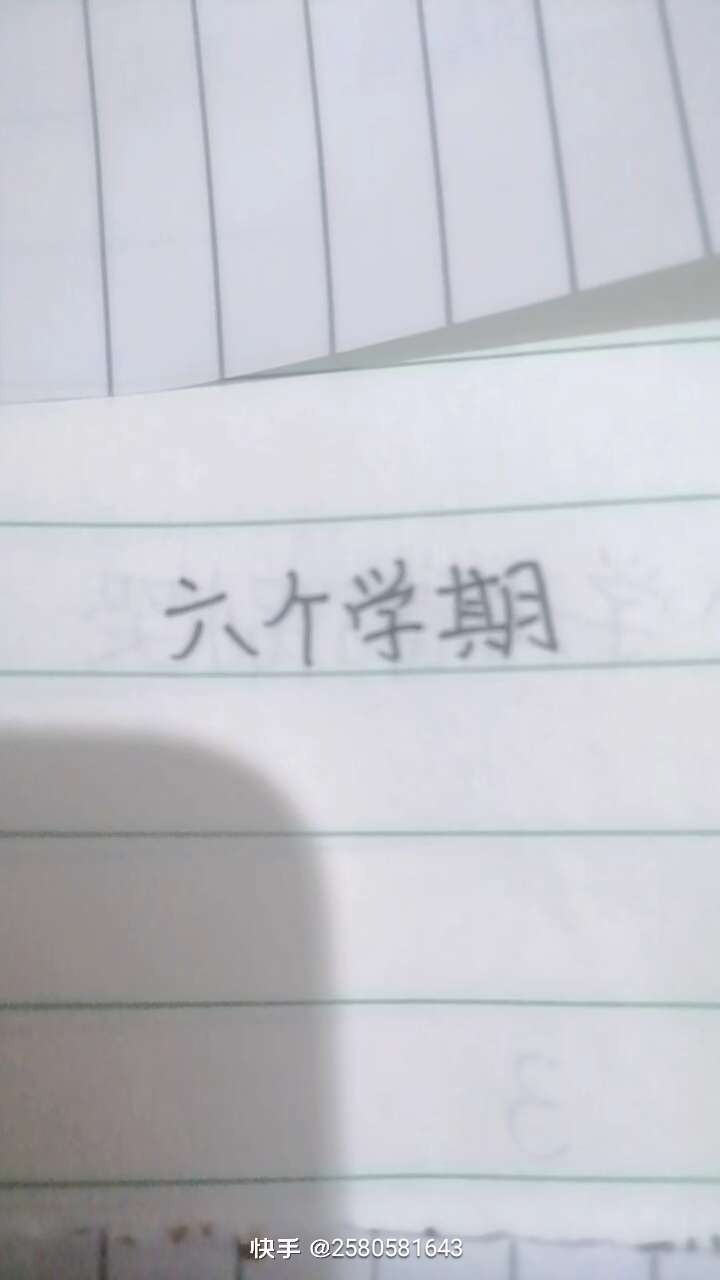 六个学期
快手 @2580581643